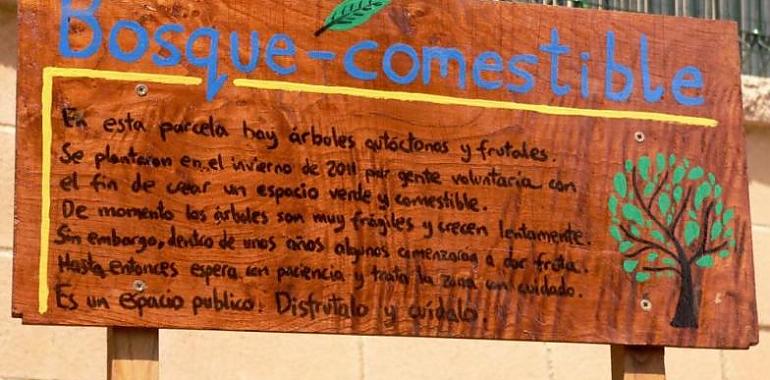 Bosque-comestible
En esta parcela hay árboles autóctonos y frutales.
Se plantaron en el invierno de 2011 por gente voluntaria con
el fin de crear un espacio verde y comestible.
De momento los árboles son muy frágiles y crecen lentamente.
Sin embargo, dentro de unos años algunos comenzaran a dar fruta.
Hasta entonces espera con paciencia y trata la zona con cuidado.
Es un espacio publico. Disfrutalo y cuídalo.